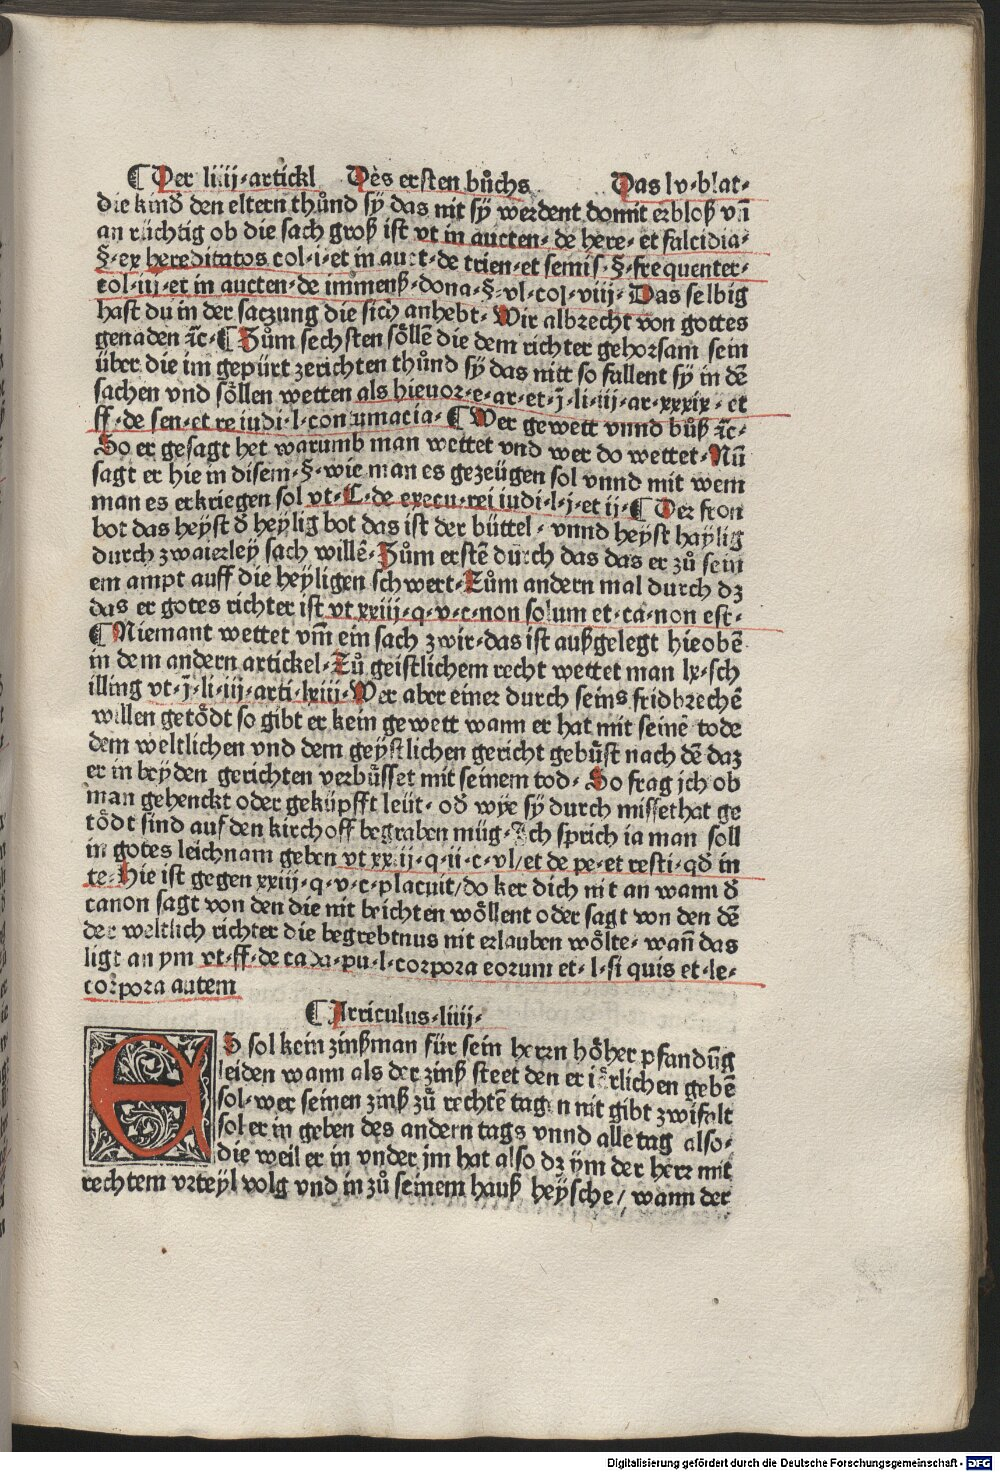 ¶ Der liiij·artickl Des ersten bůchs Das lv·blat·
die kind den eltern thůnd sÿ das nit sÿ werdent domit erbloß vñ
an rüchtig ob die sach groß ist vt in aucten· de here· et falcidia·
§· ex hereditatos col·i·et in auct·de trien·et semis·§·frequenter·
col·iij·et in aucten·de immenß·dona·§·vl·col·viij· Das selbig
hast du in der saczung die sich anhebt· Wir albrecht von gottes
genaden ꝛc·¶ Zům sechsten söllē die dem richter gehorsam sein
über die im gepürt zerichten thůnd sÿ das nitt so fallent sÿ in dē
sachen vnd söllen wetten als hieuor·e·ar·et·j̄·li·iij·ar·xxxix· et
ff·de sen·et re iudi·l·contumacia·¶ Wer gewett vnnd bůß ꝛc·
So er gesagt het warumb man wettet vnd wer do wettet·Nū
sagt er hie in disem·§·wie man es gezeügen sol vnnd mit wem
man es erkriegen sol vt·C·de execu·rei iudi·l·j·et ij·¶ Der fron
bot das heÿst d̄ heÿlig bot das ist der büttel· vnnd heÿst haÿlig
durch zwaierleÿ sach willē·Zům erstē durch das das er zů sein
em ampt auff die heyligen schwert·Zům andern mal durch dz
das er gotes richter ist vt xxiij·q·v·c·non solum et·ca·non est·
¶Niemant wettet vm̄ ein sach zwir·das ist außgelegt hieobē
in dem andern artickel·Zů geistlichem recht wettet man lx·sch
illing vt·j̄·li·iij·arti·lxiii·Wer aber einer durch seins fridbrechē
willen getödt so gibt er kein gewett wann er hat mit seinē tode
dem weltlichen vnd dem geÿstlichen gericht gebüst nach dē daz
er in beyden gerichten verbüsset mit seinem tod· So frag jch ob
man gehenckt oder geküpfft leüt· od̄ wÿe sÿ durch missethat ge
tödt sind auf den kirchoff begraben müg·Jch sprich ia man soll
in gotes leichnam geben vt xxiij·q·ii·c·vl/et de pe·et resti·qd̄ in
te·Hie ist gegen xxiij·q·v·c·placuit/do ker dich nit an wann d̄
canon sagt von den die nit beichten wöllent oder sagt von den dē
der weltlich richter die begrebtnus nit erlauben wölte· wañ das
ligt an ym vt·ff·de cada·pu·l·corpora eorum et·l·si quis et·le·
corpora autem
¶ Articulus·liiij·
ES sol kein zinßman für sein herrn höher pfandūg
leiden wann als der zinß steet den er iärlichen gebē
sol·wer seinen zinß zů rechtē tagen nit gibt zwifalt
sol er in geben des andern tags vnnd alle tag also·
die weil er in vnder jm hat also dz ÿm der herr mit
rechtem vrteÿl volg vnd in zů seinem hauß heÿsche/ wann der
Digitalisierung gefördert durch die Deutsche Forschungsgemeinschaft - DFG